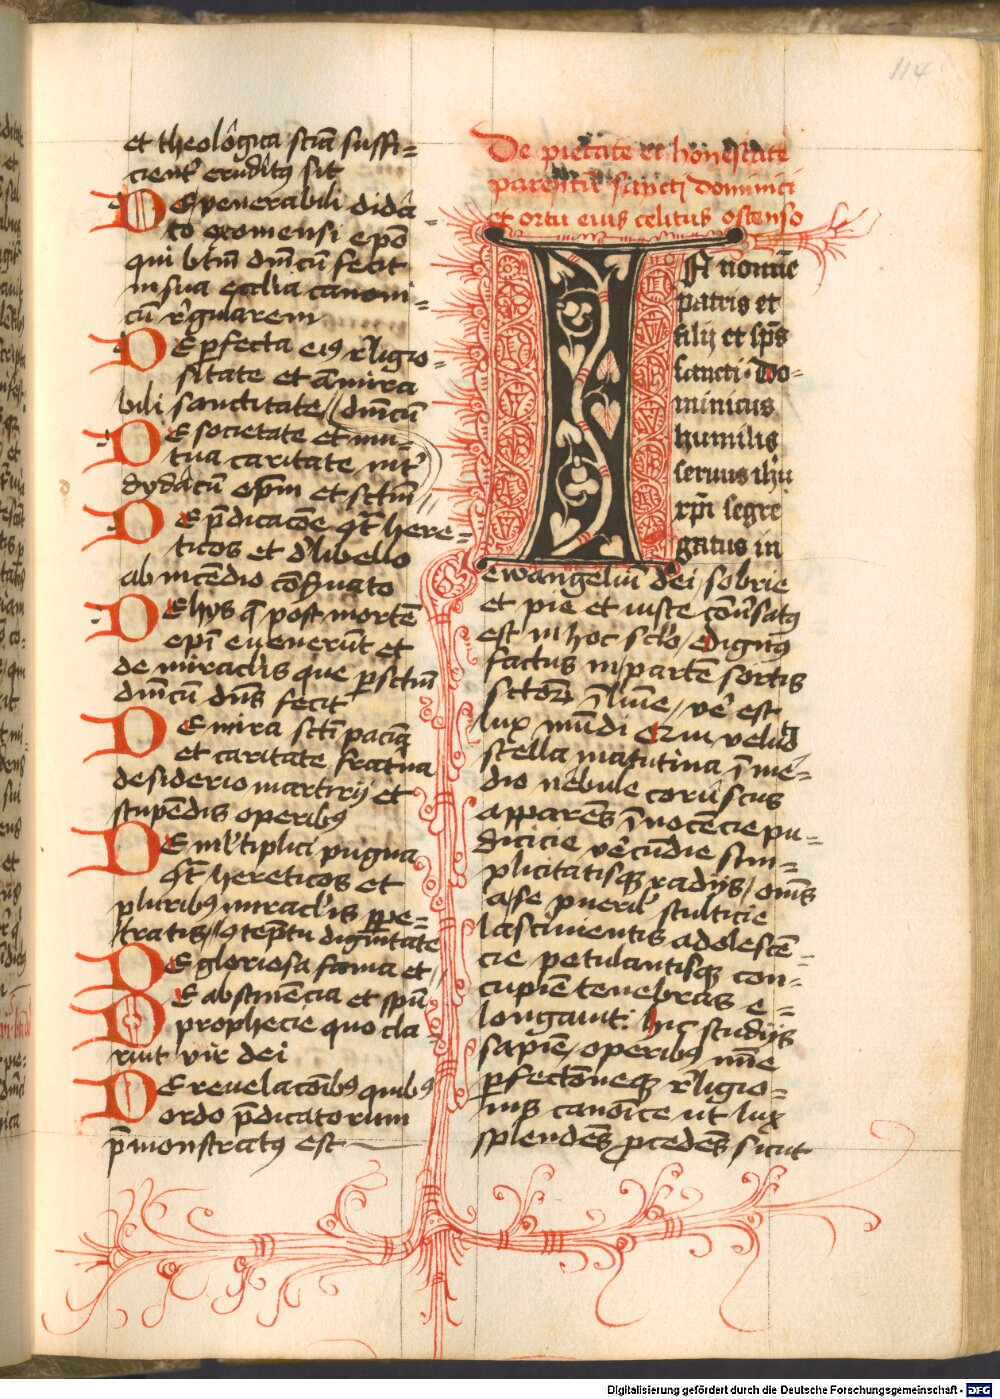 114
et theologica scia suffi=
cient erudit9 sit
De venerabili dida
co oxomensi epo
qui btm dnicu fecit
in sua ecclia canoni=
cu regularem
De pfecta ei9 religio=
sitate et amira
bili sanctitate / dnicu
De societate et mu=
tua caritate int
dydacu epm et sctm
De pdicacoe ct here=
ticos et de libello
ab incendio coservato
De hys q post morte
epi evenerut et
de miraclis que p sctm
dnicu dns fecit
De mira scti pacia
et caritate frat'na
desiderio martirij et
stupedis operib9
De mltiplici pugna
ct hereticos et
plurib9 miraclis ppe=
tratis / cteptu dignitate
De gloriosa fama et
De abstinecia et spu
prophecie quo cla=
ruit vir dei
De revelacoib9 quib9
ordo pdicatorum
pmonstrat9 est
De pietate et honestate
parentu sancti dominici
et ortu eius celitus ostenso
In nomie
patris et
filij et sps
sancti. Do=
minicus
humilis
servus ihu
xpi segre
gatus in
ewangeliu dei / sobrie
et pie et iuste covsat9
est in hoc sclo / dign9
factus in parte sortis
sctoru i lumie / ve est
lux mudi
stella matutina i me=
dio nebule coruscus
apparens inocecie pu=
dicicie vecudie sim=
plicitatisq radijs / omis
a se pueril stulticie
lascivientis adolesce=
cie petulantisq con=
cupie tenebras e=
longavit. hic studijs
sapie / operib9 mie
pfectoneq religio=
nis canoice ut lux
splendes pcedes sicut
Digitalisierung gefördert durch die Deutsche Forschungsgemeinschaft - DFG